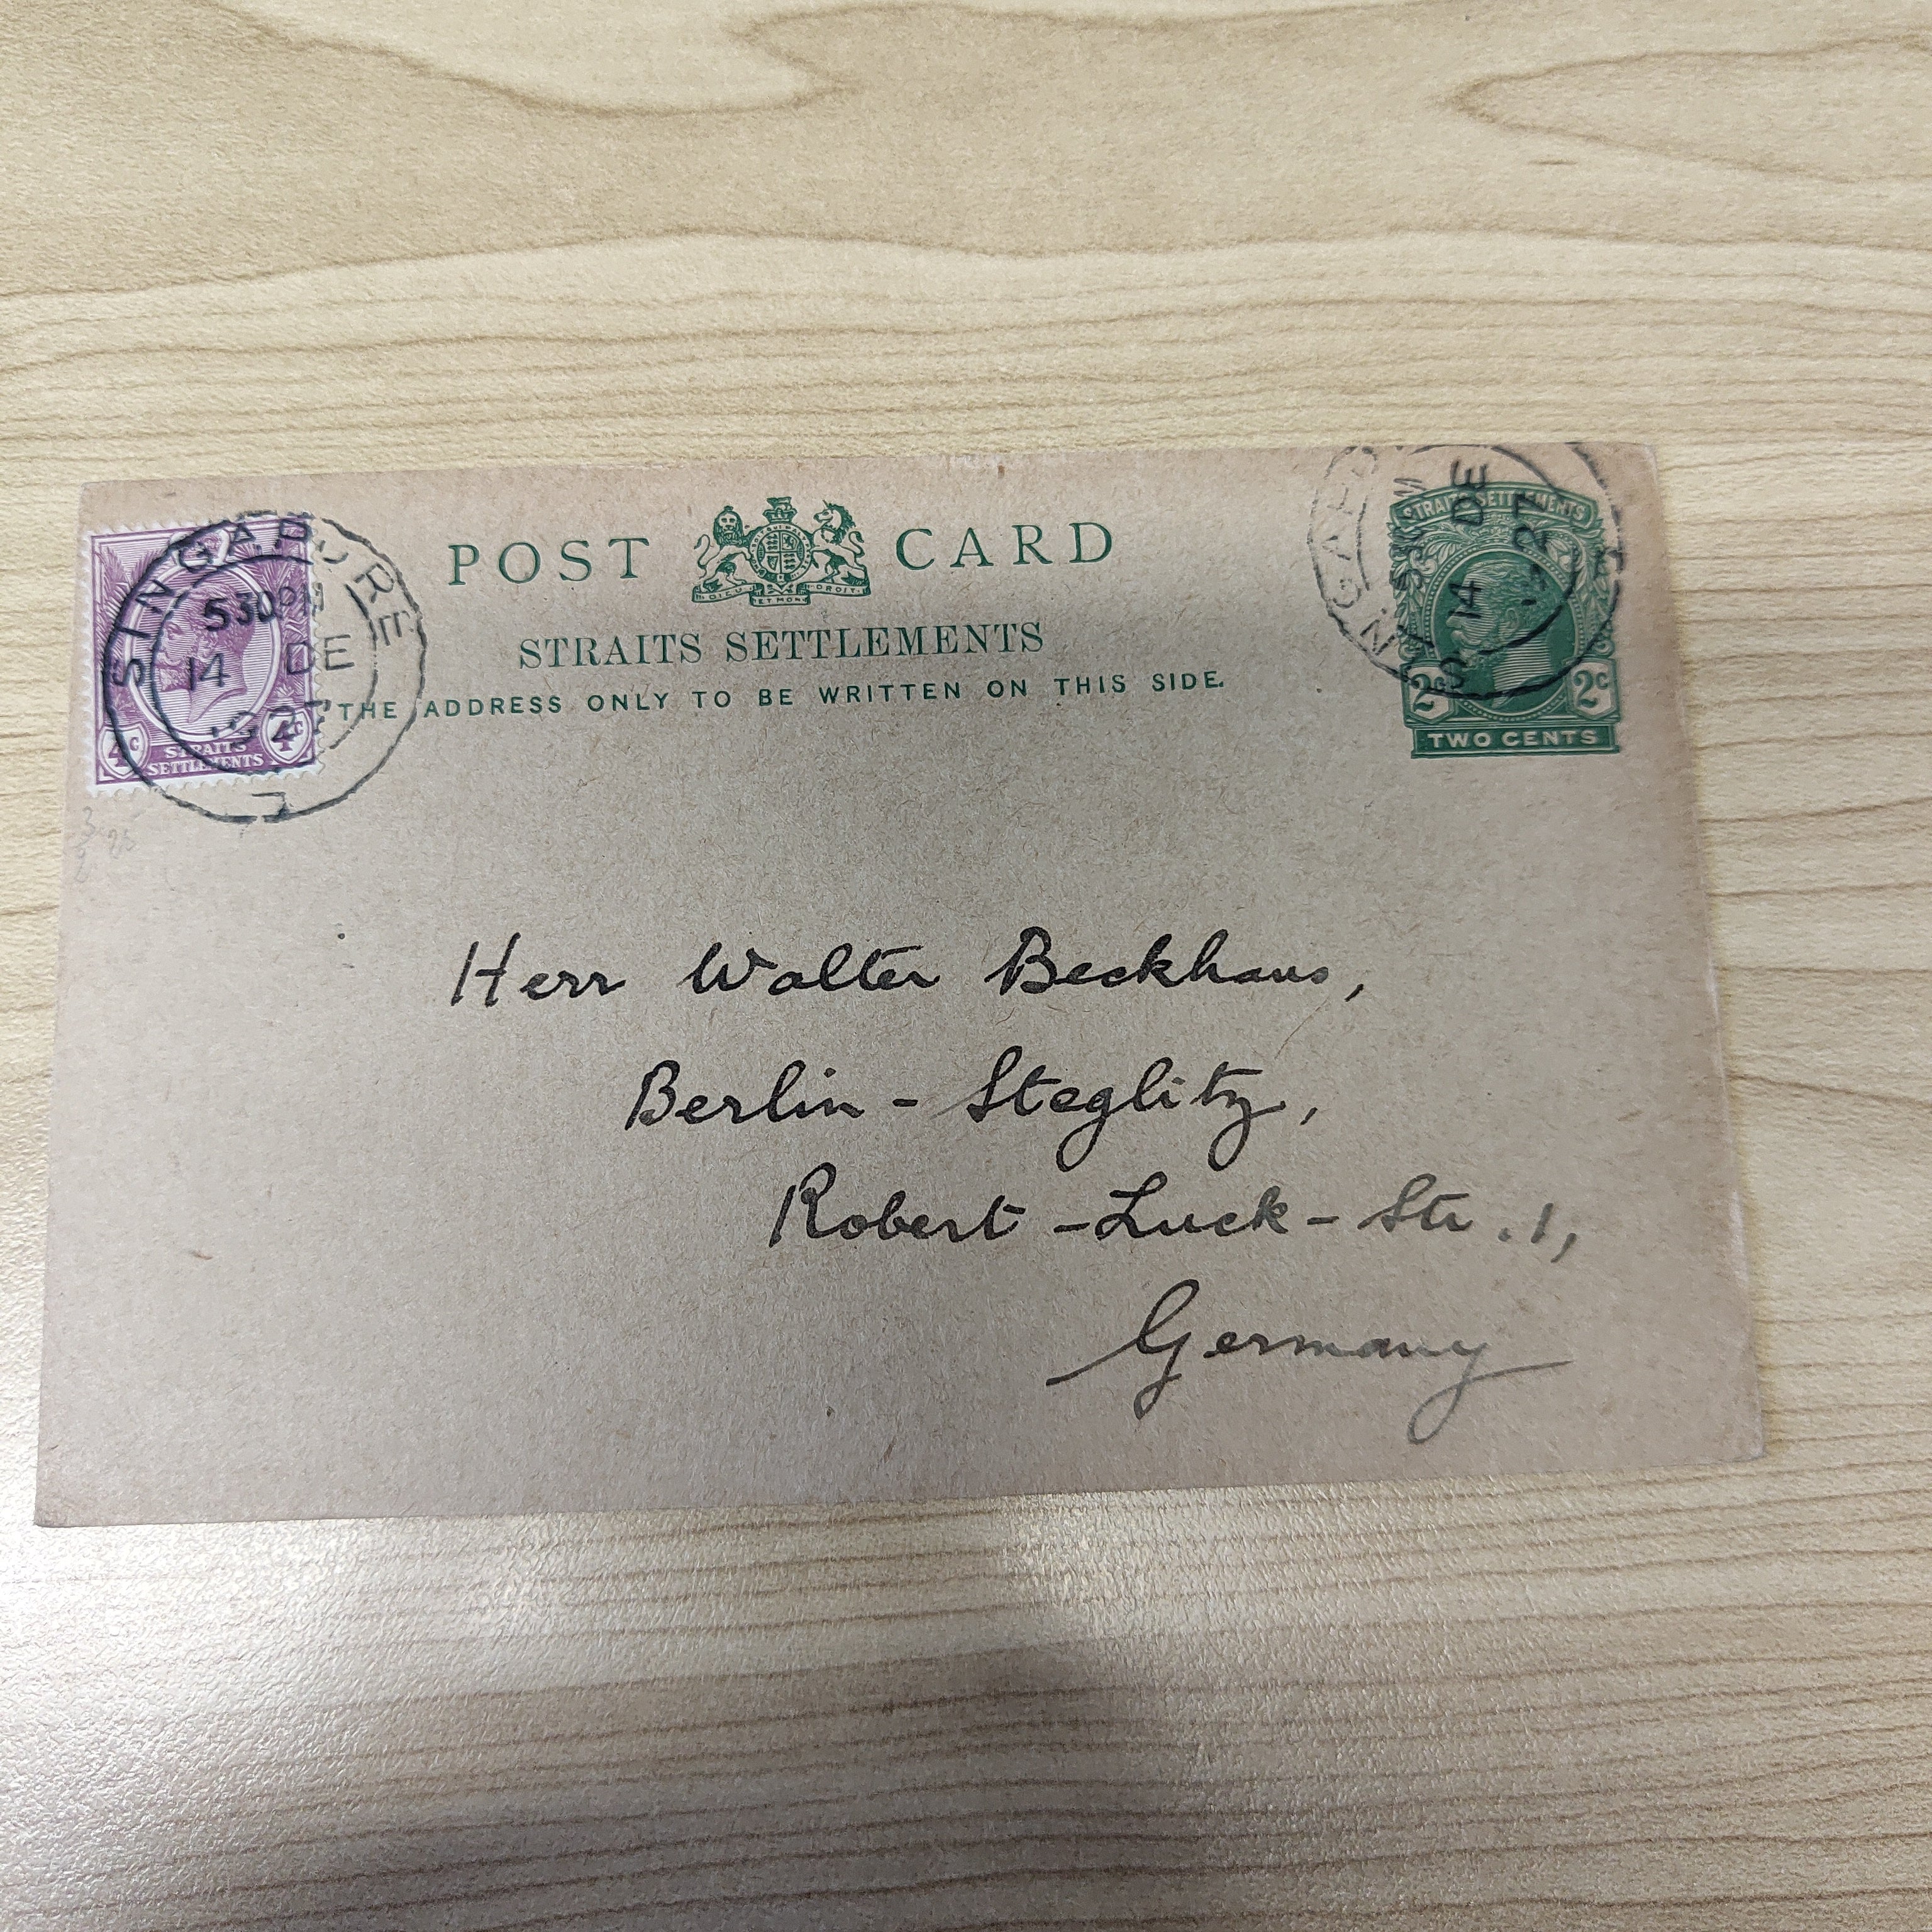 POST CARD
DIEU ET MON DROIT
STRAITS SETTLEMENTS
THE ADDRESS ONLY TO BE WRITTEN ON THIS SIDE.
SINGAPORE
530PM
14 DE
1927
4c 4c
STRAITS
SETTLEMENTS
SINGAPO
14 DE
27
STRAITS SETTLEMENTS
2c 2c
TWO CENTS
Herr Walter Beckhaus,
Berlin - Steglitz,
Robert - Luck - Str. 1,
Germany